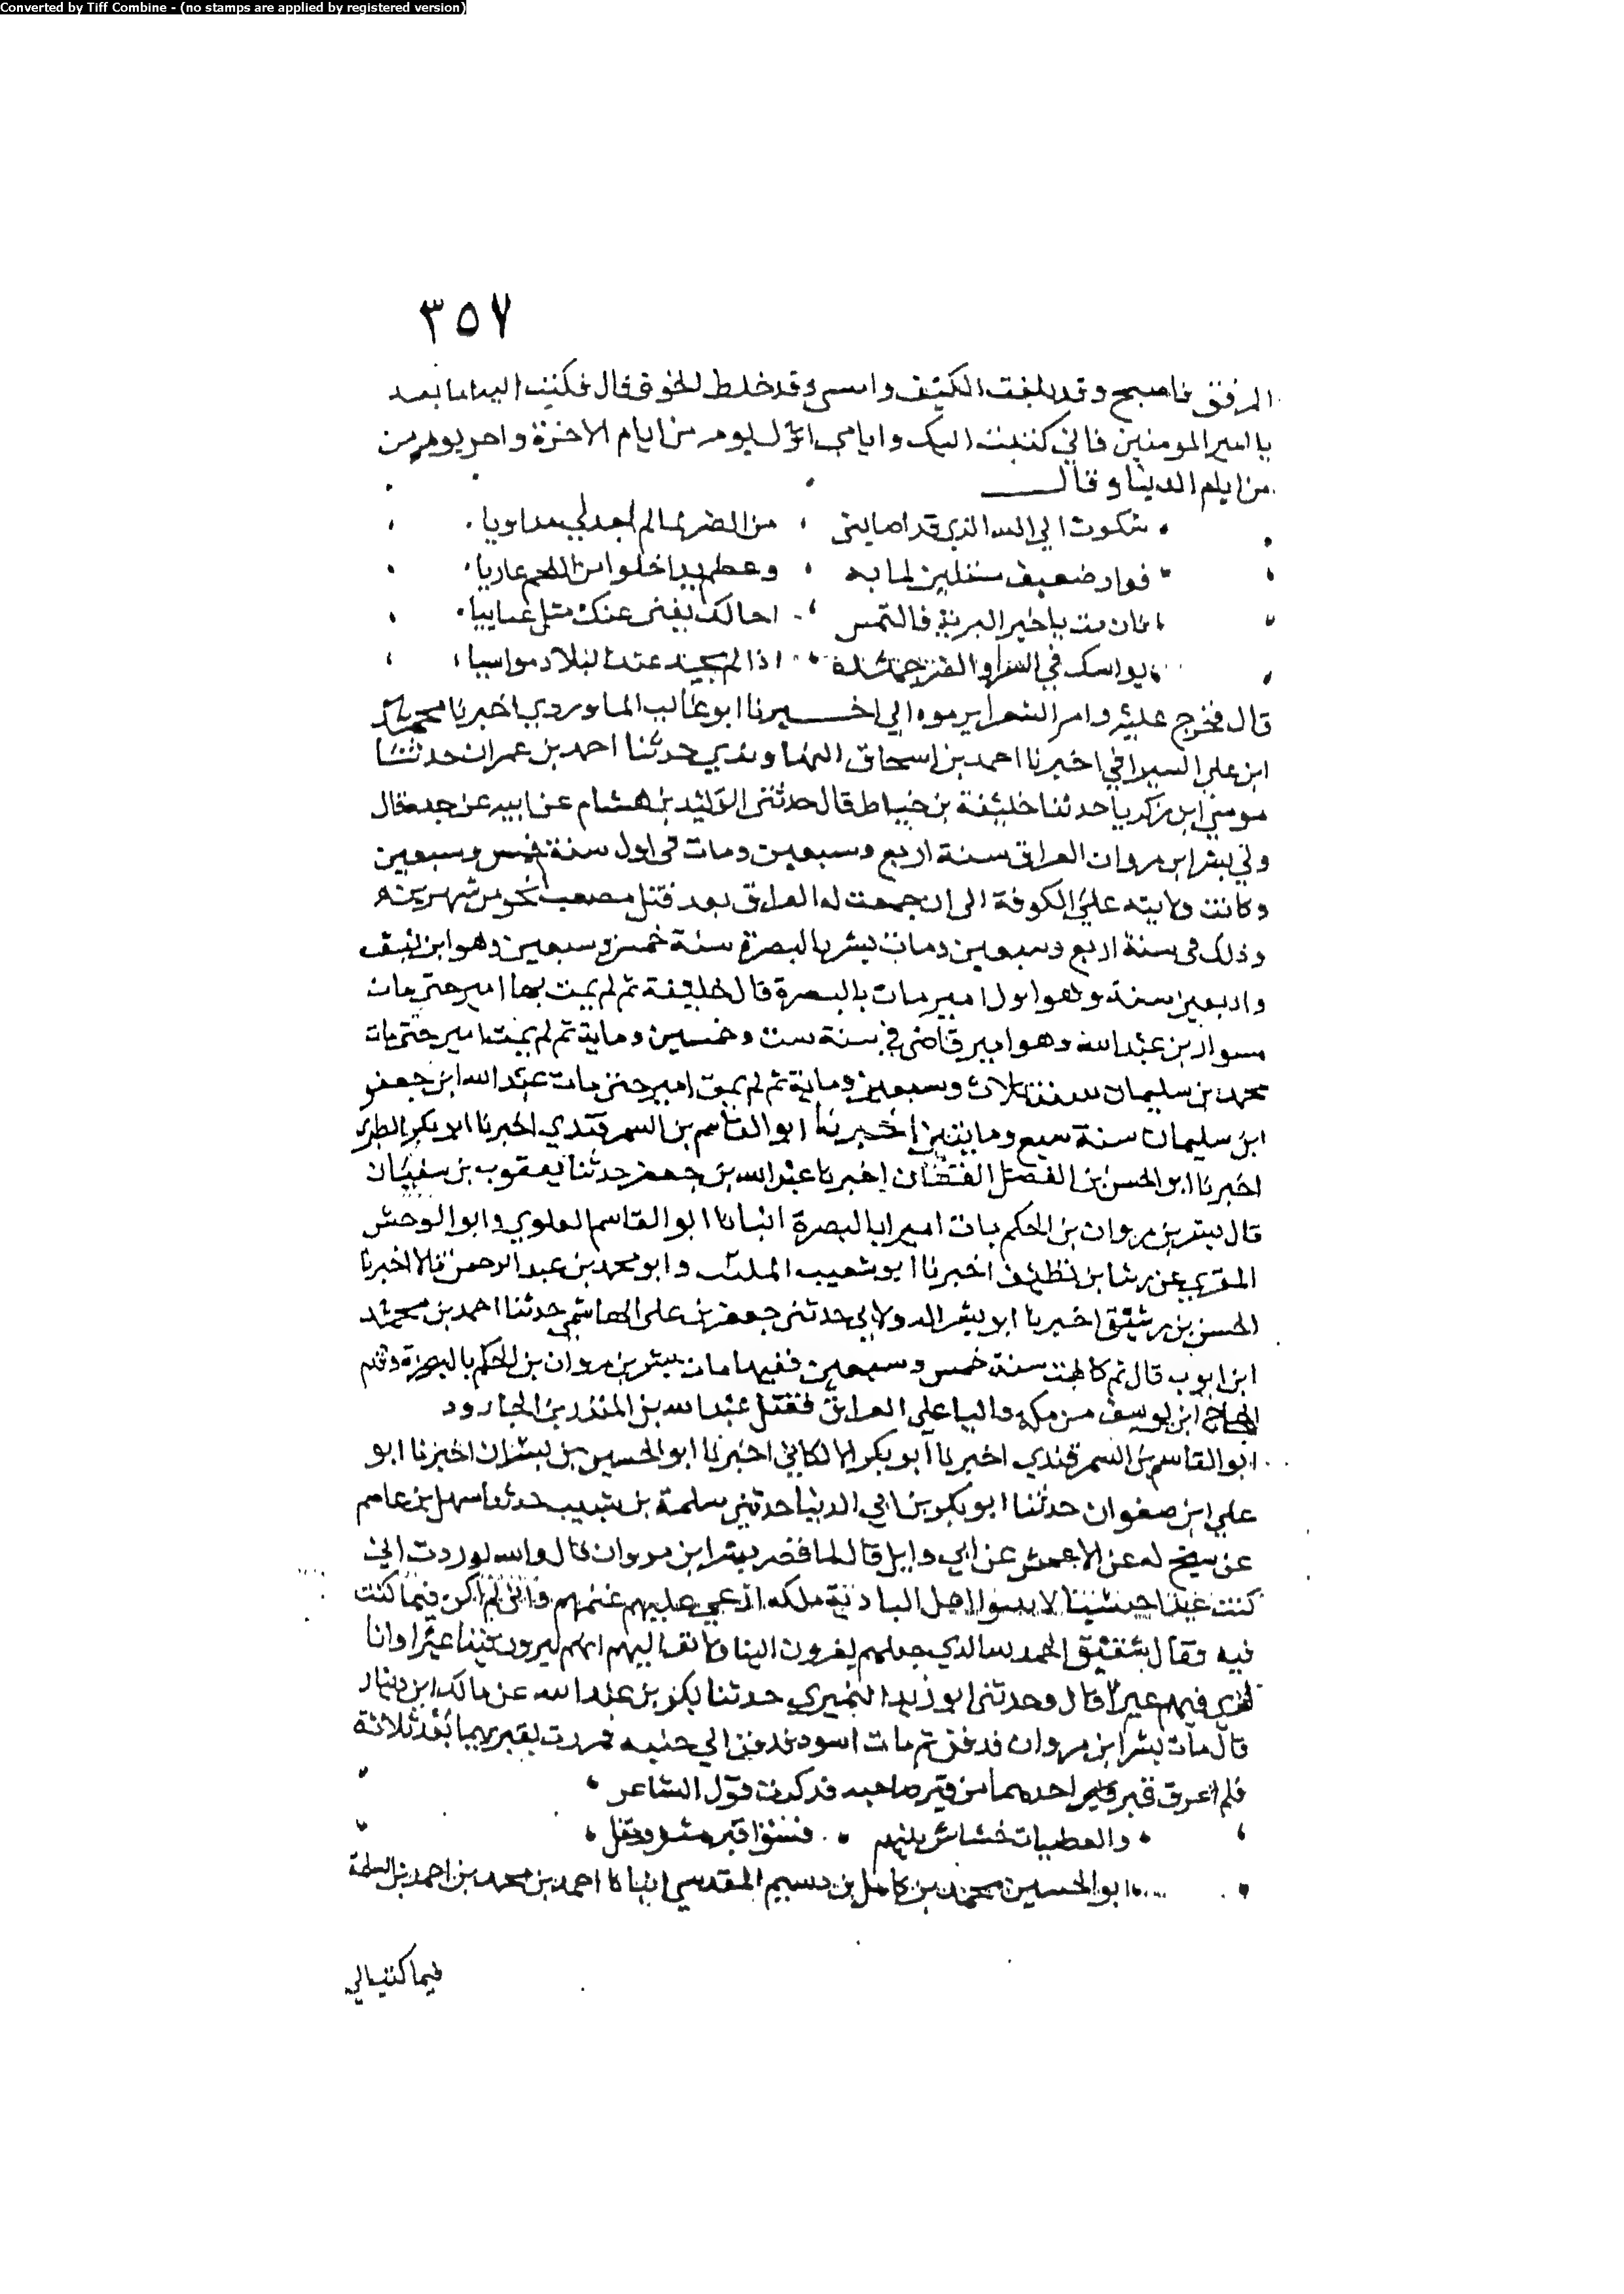 Converted by Tiff Combine - (no stamps are applied by registered version)
٣٥٧
المرفق فاصبح وقد بلغت الكتف وامسى وقد خلط الجوف قال فكتب اليه اما بعد
يا امير المومنين فاني كتبت اليك وايامي اول يوم من ايام الاخرة واخر يوم من
من ايام الدنيا وقال
شكوت الى الله الذي قد اصابني من الضر لما لم اجد لي مداويا
فواد ضعيف مستكين لما به وعظم بدا خلوا من اللحم عاريا
فان مت يا خير البرية فالتمس اخا لك يغني عنك مثل غنايا
يواسيك في السرا والضر جهده اذا لم تجد عند البلا مواسيا
قال فخرج عليه وامر الشعرا يرموه الي اخبرنا ابو غالب الماوردي اخبرنا محمد
ابن علي السيرافي اخبرنا احمد بن اسحاق النهاوندي حدثنا احمد بن عمران حدثنا
موسى ابن زكريا حدثنا خليفة بن خياط قال حدثني الوليد بن هشام عن ابيه عن جده قال
ولي بشر ابن مروان العراق سنة اربع وسبعين ومات في اول سنة خمس وسبعين
وكانت ولايته علي الكوفة الى ان جمعت له العراق بعد قتل مصعب نحو من شهرين
وذلك في سنة اربع وسبعين ومات بشر بالبصرة سنة خمس وسبعين وهو ابن نيف
واربعين سنة وهو اول امير مات بالبصرة قال خليفة ثم لم يمت بها امير حتى مات
سوار بن عبد الله وهو امير قاضي في سنة ست وخمسين وماية ثم لم يمت امير حتى مات
محمد بن سليمان سنة ثلاث وسبعين وماية ثم لم يمت امير حتى مات عبد الله ابن جعفر
ابن سليمان سنة سبع ومايتين اخبرنا ابو القاسم بن السمرقندي اخبرنا ابو بكر الطبري
اخبرنا ابو الحسن بن الفضل القطان اخبرنا عبد الله بن جعفر حدثنا يعقوب بن سفيان
قال بشر بن مروان بن الحكم مات اميرا بالبصرة انبانا ابو القاسم العلوي وابو الوحش
المقري عن رشا بن نظيف اخبرنا ابو شعيب المكتب وابو محمد بن عبد الرحمن قالا اخبرنا
الحسن بن رشيق اخبرنا ابو بشر الدولابي حدثني جعفر بن علي الهاشمي حدثنا احمد بن محمد
ابن ايوب قال ثم كانت سنة خمس وسبعين ففيها مات بشر بن مروان بن الحكم بالبصرة وقدم
الحجاج ابن يوسف من مكه واليا علي العراق فقتل عبد الله بن المنذر بن الجارود
ابو القاسم بن السمرقندي اخبرنا ابو بكر اللالكائي اخبرنا ابو الحسين بن بشران اخبرنا ابو
علي ابن صفوان حدثنا ابو بكر بن ابي الدنيا حدثني سلمة بن شبيب حدثنا سهل بن عاصم
عن شيخ له عن الاعمش عن ابي وايل قال لما حضر بشر ابن مروان قال والله لوددت اني
كنت عبدا حبشيا لاسوا اهل البادية ملكه ارعي عليهم غنمهم واني لم اكن فيما كنت
فيه فقال شقيق الحمد لله الذي جعلهم يفرون الينا ولا نفر اليهم انهم ليرون فينا عبرا وانا
لنري فيهم عبرا قال وحدثني ابو زيد النميري حدثنا بكر بن عبد الله عن مالك ابن دينار
قال مات بشر ابن مروان فدفن ثم مات اسود فدفن الي جنبه فمررت بقبريهما بعد ثلاثة
فلم اعرف قبر احدهما من قبر صاحبه فذكرت قول الشاعر
والعطيات خشاش بينهم فسوا قبر مثر ومقل
ابو الحسين محمد بن كامل بن ديسم المقدسي انبانا احمد بن محمد بن احمد بن المسلمة
فيما كتب الي